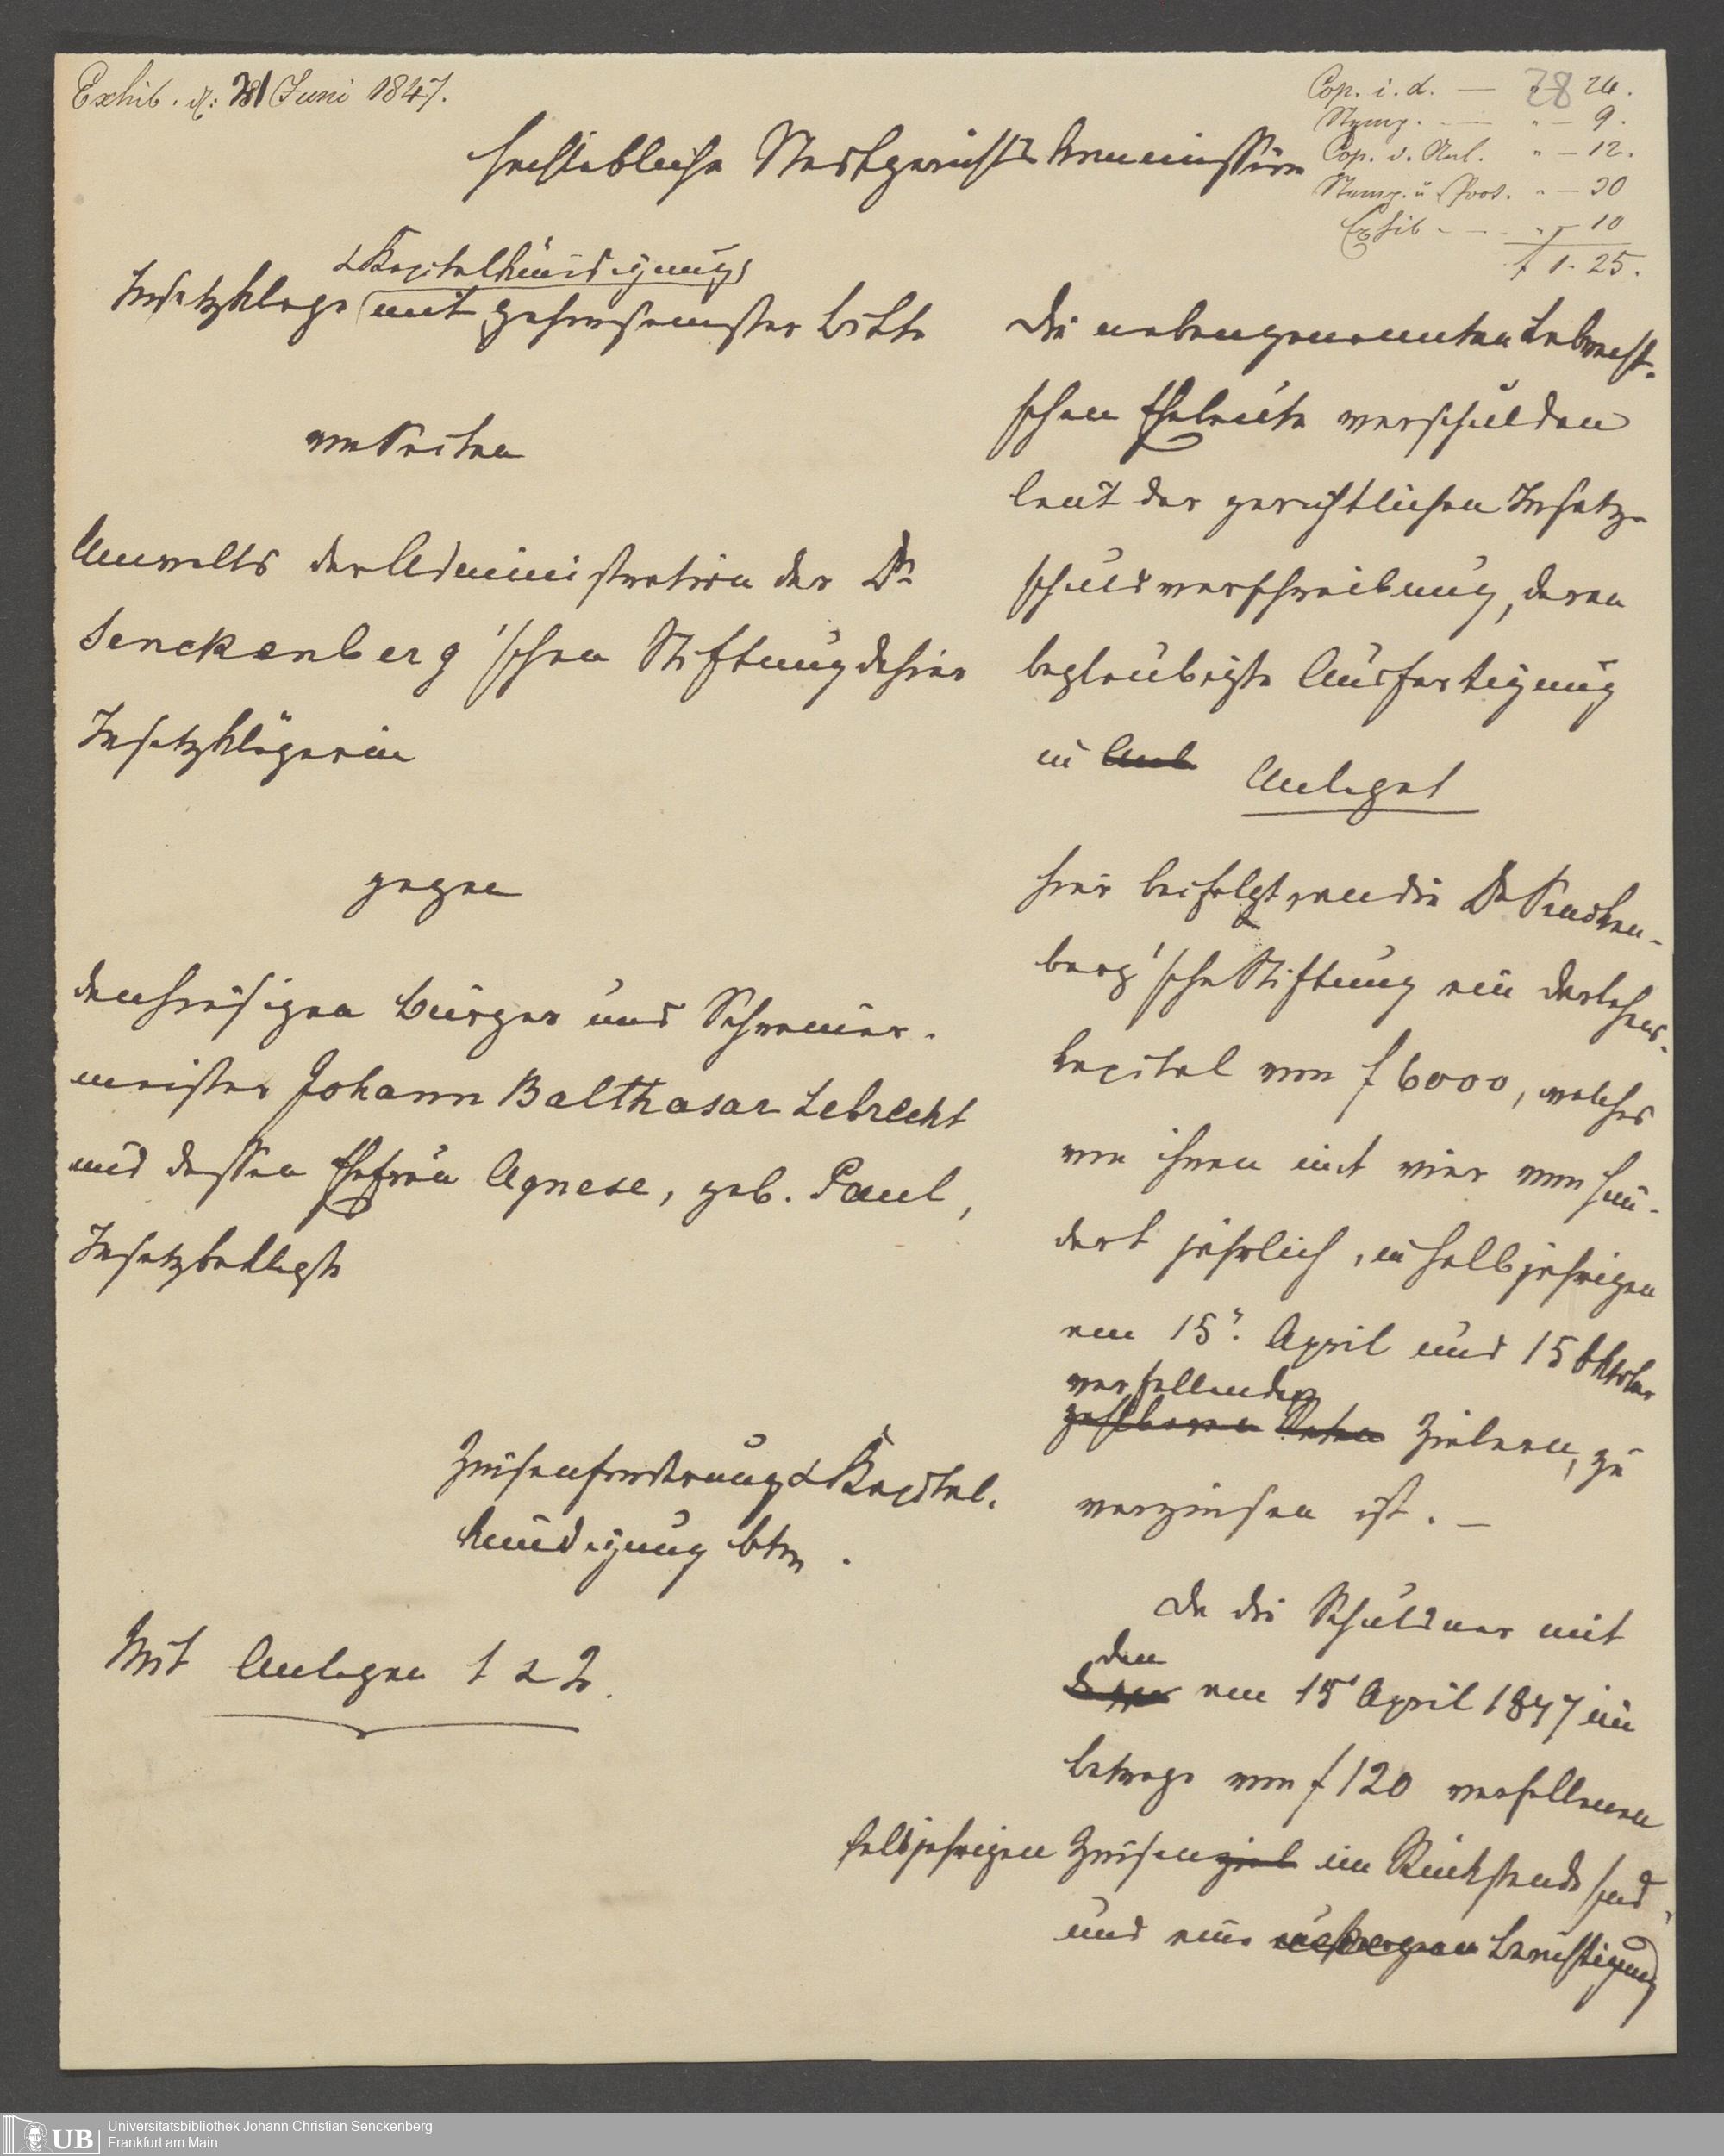 Exhib. d: 21 Juni 1847.
Cop. i. d. — " — 24.
28
Stemp. — " — 9.
Cop. d. Anl. " — 12.
Stemp. u Prot. " — 30
Exhib — " — 10
f 1. 25.
Hochlöbliche Stadtgerichts Commission
& Kapitalkündigung
Insatzklage mit gehorsamster Bitte
von Seiten
Anwalts der Administration der Dr
Senckenberg'schen Stiftung dahier
Insatzklägerin
gegen
den hiesigen Bürger und Schreiner-
meister Johann Balthasar Lebrecht
und dessen Ehefrau Agnese, geb. Paul,
Insatzbeklagte
Zinsenforderung & Kapital-
kündigung btr.
Mit Anlagen 1 & 2.
Die nebengenannten Lebrecht-
schen Eheleute verschulden
laut der gerichtlichen Insatz-
schuldverschreibung, deren
beglaubigte Ausfertigung
in Anl Anlage 1
hier beifolgt, an die Dr Sencken-
berg'sche Stiftung ein Darlehens-
kapital von f 6000, welches
von ihnen mit vier vom Hun-
dert jährlich, in halbjährigen
am 15. April und 15 Oktober
verfallenden
zahlbaren Raten Zielern, zu
verzinsen ist. —
Da die Schuldner mit
den
am 15 April 1847 im
Betrage von f 120 verfallenen
halbjährigen Zinsenziel im Rückstande sind,
und eine Berichtigung